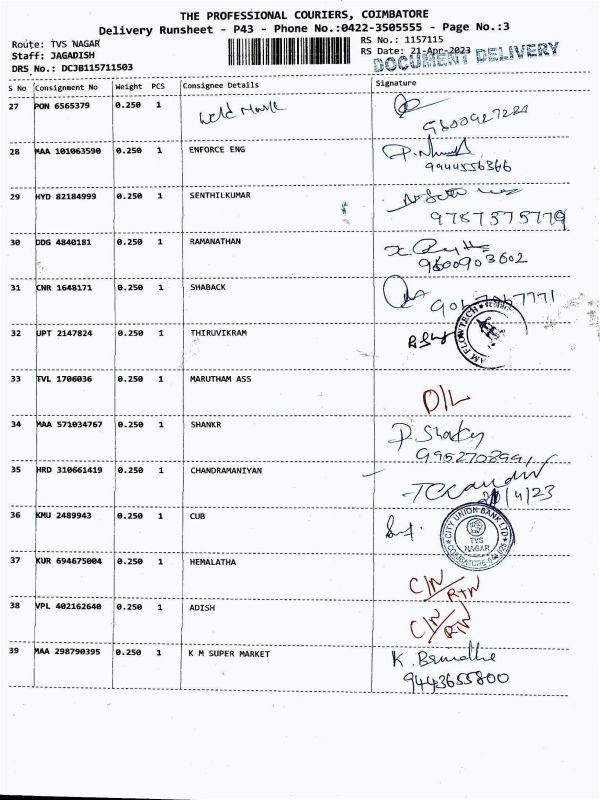 THE PROFESSIONAL COURIERS, COIMBATORE
Delivery Runsheet - P43 - Phone No.:0422-3505555 - Page No.:3
Route: TVS NAGAR
RS No.: 1157115
Staff: JAGADISH
RS Date: 21-Apr-2023
DRS No.: DCJB115711503
DOCUMENT DELIVERY
S No Consignment No Weight PCS Consignee Details Signature
27 PON 6565379 0.250 1
28 MAA 101063590 0.250 1 ENFORCE ENG
9944556366
29 HYD 82184999 0.250 1 SENTHILKUMAR
9787575779
30 DDG 4840181 0.250 1 RAMANATHAN
9600903602
31 CNR 1648171 0.250 1 SHABACK
32 UPT 2147824 0.250 1 THIRUVIKRAM
AM FLOWTECH
33 TVL 1706036 0.250 1 MARUTHAM ASS
D/L
34 MAA 571034767 0.250 1 SHANKR
35 HRD 310661419 0.250 1 CHANDRAMANIYAN
/4/23
36 KMU 2489943 0.250 1 CUB
CITY UNION BANK LTD
TVS
NAGAR
COIMBATORE
37 KUR 694675004 0.250 1 HEMALATHA
C/N
RTN
38 VPL 402162640 0.250 1 ADISH
C/N
RTN
39 MAA 298790395 0.250 1 K M SUPER MARKET
9443655800